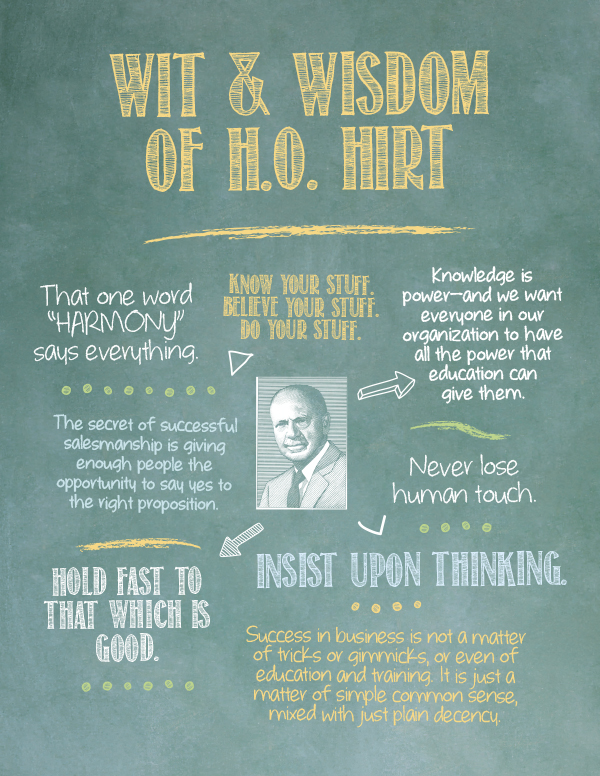 WIT & WISDOM
OF H.O. HIRT
That one word
"HARMONY"
says everything.
KNOW YOUR STUFF.
BELIEVE YOUR STUFF.
DO YOUR STUFF.
Knowledge is
power—and we want
everyone in our
organization to have
all the power that
education can
give them.
The secret of successful
salesmanship is giving
enough people the
opportunity to say yes to
the right proposition.
Never lose
human touch.
HOLD FAST TO
THAT WHICH IS
GOOD.
INSIST UPON THINKING.
Success in business is not a matter
of tricks or gimmicks, or even of
education and training. It is just a
matter of simple common sense,
mixed with just plain decency.